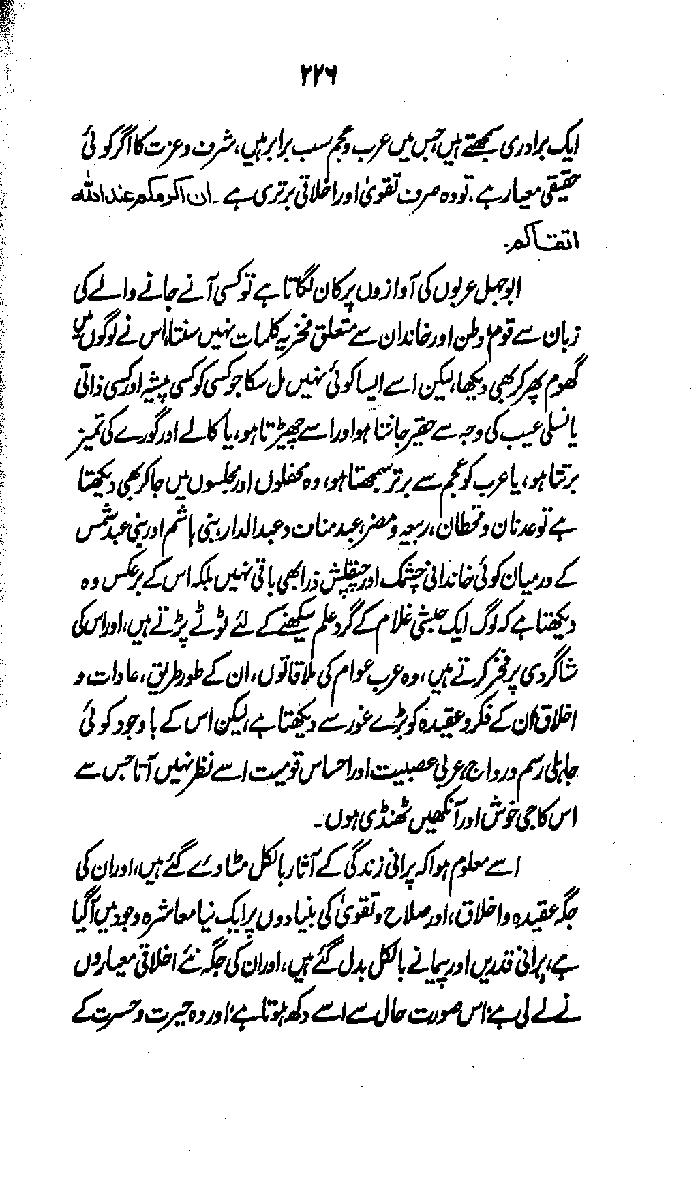 ۲۲۶
ایک برادری سمجھتے ہیں جس میں عرب و عجم سب برابر ہیں، شرف و عزت کا اگر کوئی
حقیقی معیار ہے، تو وہ صرف تقویٰ اور اخلاقی برتری ہے۔ ان اکرمکم عند اللہ
اتقاکم۔
ابو جہل عربوں کی آوازوں پر کان لگاتا ہے تو کسی آنے جانے والے کی
زبان سے قوم وطن اور خاندان سے متعلق فخریہ کلمات نہیں سنتا، اس نے لوگوں میں
گھوم پھر کر بھی دیکھا، لیکن اسے ایسا کوئی نہیں مل سکا جو کسی کو کسی پیشہ اور کسی ذاتی
یا نسلی عیب کی وجہ سے حقیر جانتا ہو اور اسے چھیڑتا ہو، یا کالے اور گورے کی تمیز
برتتا ہو، یا عرب کو عجم سے برتر سمجھتا ہو، وہ محفلوں اور مجلسوں میں جا کر بھی دیکھتا
ہے تو عدنان و قحطان، ربیعہ و مضر، عبد منات و عبد الدار، بنی ہاشم اور بنی عبد شمس
کے درمیان کوئی خاندانی چشمک اور چپقلش ذرا بھی باقی نہیں بلکہ اس کے برعکس وہ
دیکھتا ہے کہ لوگ ایک حبشی غلام کے گرد علم سیکھنے کے لئے ٹوٹے پڑتے ہیں، اور اس کی
شاگردی پر فخر کرتے ہیں، وہ عرب عوام کی ملاقاتوں، ان کے طور طریق، عادات و
اخلاق، ان کے فکر و عقیدہ کو بڑے غور سے دیکھتا ہے، لیکن اس کے باوجود کوئی
جاہلی رسم و رواج، عربی عصبیت اور احساس قومیت اسے نظر نہیں آتا جس سے
اس کا جی خوش اور آنکھیں ٹھنڈی ہوں۔
اسے معلوم ہوا کہ پرانی زندگی کے آثار بالکل مٹا دئے گئے ہیں، اور ان کی
جگہ عقیدہ و اخلاق، اور صلاح و تقویٰ کی بنیادوں پر ایک نیا معاشرہ وجود میں آگیا
ہے، پرانی قدریں اور پیمانے بالکل بدل گئے ہیں، اور ان کی جگہ نئے اخلاقی معیاروں
نے لے لی ہے؛ اس صورت حال سے اسے دکھ ہوتا ہے؛ اور وہ حیرت و حسرت کے